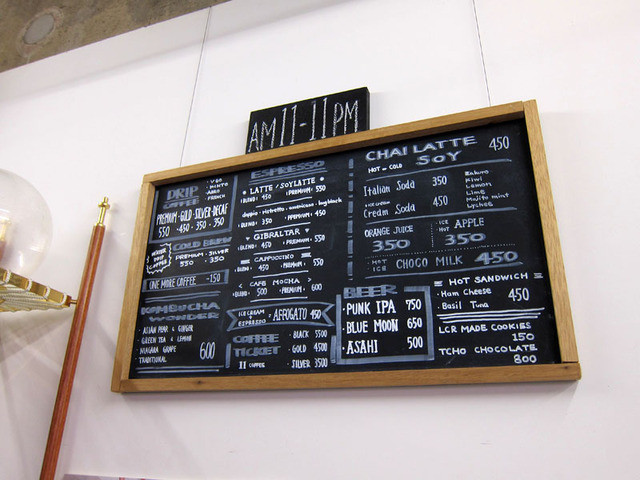 AM 11-11 PM
DRIP
COFFEE
PREMIUM·GOLD·SILVER·DECAF
550 · 450 · 350 · 350
COLD BREW
PREMIUM · SILVER
550 · 350
WINTER
COFFEE
ONE MORE COFFEE -150
KOMBUCHA
WONDER
· ASIAN PEAR & GINGER
· GREEN TEA & LEMON
· NIAGARA GRAPE
TRADITIONAL
600
ESPRESSO
· LATTE / SOYLATTE ·
· BLEND : 450 · PREMIUM : 550
doppio · ristretto · americano · longblack
· BLEND : 350 · PREMIUM : 450
GIBRALTAR
· BLEND : 450 · PREMIUM : 550
CAPPUCCINO
· BLEND : 450 · PREMIUM : 550
CAFE MOCHA
· BLEND : 500 · PREMIUM : 600
ICE CREAM
+ ESPRESSO
· AFFOGATO 450
COFFEE
TICKET
11 COFFEE
· BLACK 5500
· GOLD 4500
· SILVER 3500
CHAI LATTE 450
HOT or COLD SOY
Italian Soda 350
ICE CREAM
Cream Soda 450
Kiwi
Lemon
Lime
Mojito mint
Lychee
ORANGE JUICE
350
· ICE
· HOT
APPLE
350
· HOT
· ICE
CHOCO MILK 450
BEER
· PUNK IPA 750
· BLUE MOON 650
· ASAHI 500
HOT SANDWICH
· Ham Cheese
· Basil Tuna
450
LCR MADE COOKIES
150
TCHO CHOCOLATE
800